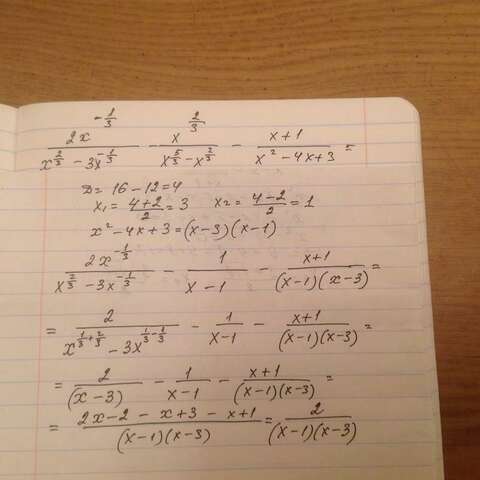 2x^{-1/3}/(x^{2/3} - 3x^{-1/3}) - x^{2/3}/(x^{5/3} - x^{2/3}) - (x+1)/(x^2 - 4x + 3) =
D = 16 - 12 = 4
x_1 = (4+2)/2 = 3 x_2 = (4-2)/2 = 1
x^2 - 4x + 3 = (x-3)(x-1)
2x^{-1/3}/(x^{2/3} - 3x^{-1/3}) - 1/(x-1) - (x+1)/((x-1)(x-3)) =
= 2/(x^{1/3+2/3} - 3x^{1/3-1/3}) - 1/(x-1) - (x+1)/((x-1)(x-3)) =
= 2/(x-3) - 1/(x-1) - (x+1)/((x-1)(x-3)) =
= (2x-2 - x+3 - x+1)/((x-1)(x-3)) = 2/((x-1)(x-3))